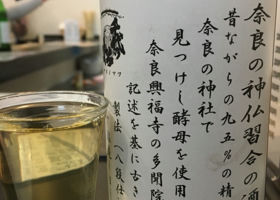 奈良の神仏習合の酒
昔ながらの九五%の精
奈良の神社で
見つけし酵母を使用
奈良興福寺の多聞院
記述を基に古き
製法(八段仕